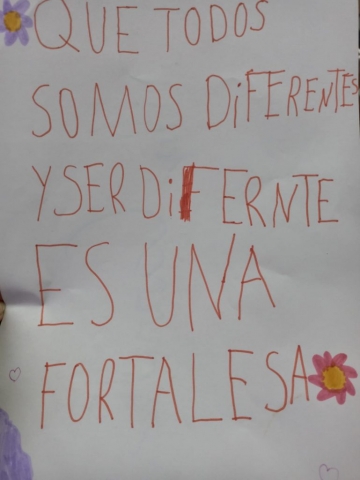 QUE TODOS
SOMOS DiFERENTES
Y SER DiFERNTE
ES UNA
FORTALESA